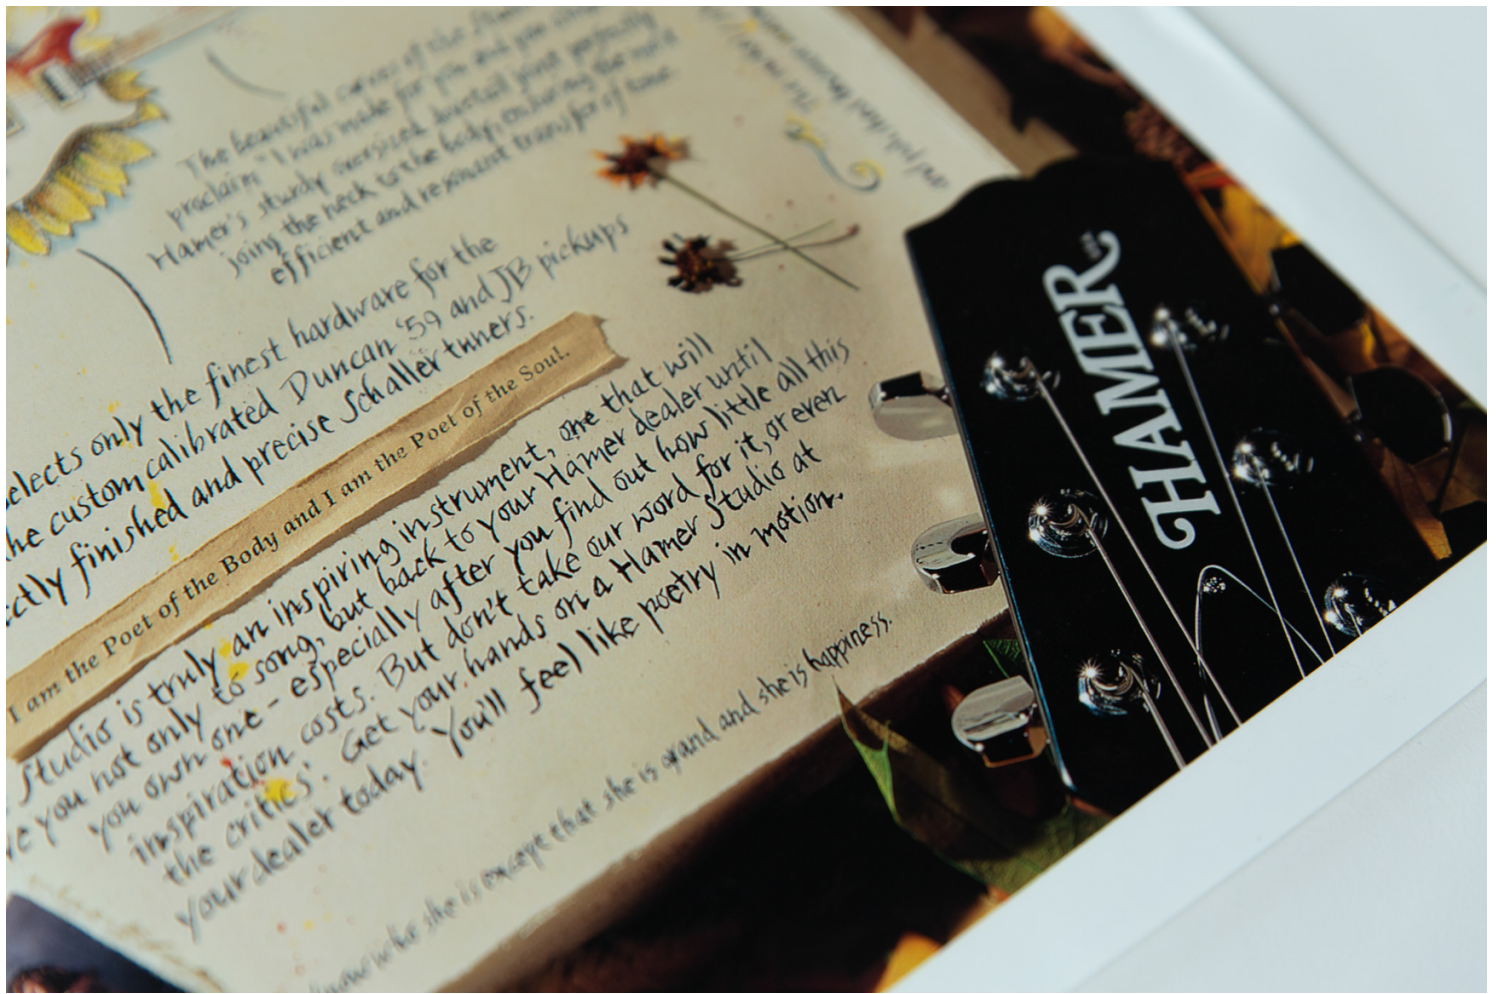 The beautiful curves of the
proclaim "I was made for
Hamer's sturdy oversized dovetail joint perfectly
joins the neck to the body, ensuring the most
efficient and resonant transfer of tone.
selects only the finest hardware for the
custom calibrated Duncan '59 and JB pickups
finished and precise Schaller tuners.
I am the Poet of the Body and I am the Poet of the Soul.
Studio is truly an inspiring instrument, one that will
you not only to song, but back to your Hamer dealer until
you own one - especially after you find out how little all this
inspiration costs. But don't take our word for it, or even
the critics'. Get your hands on a Hamer Studio at
your dealer today. You'll feel like poetry in motion.
who she is except that she is grand and she is happiness.
HAMER
USA